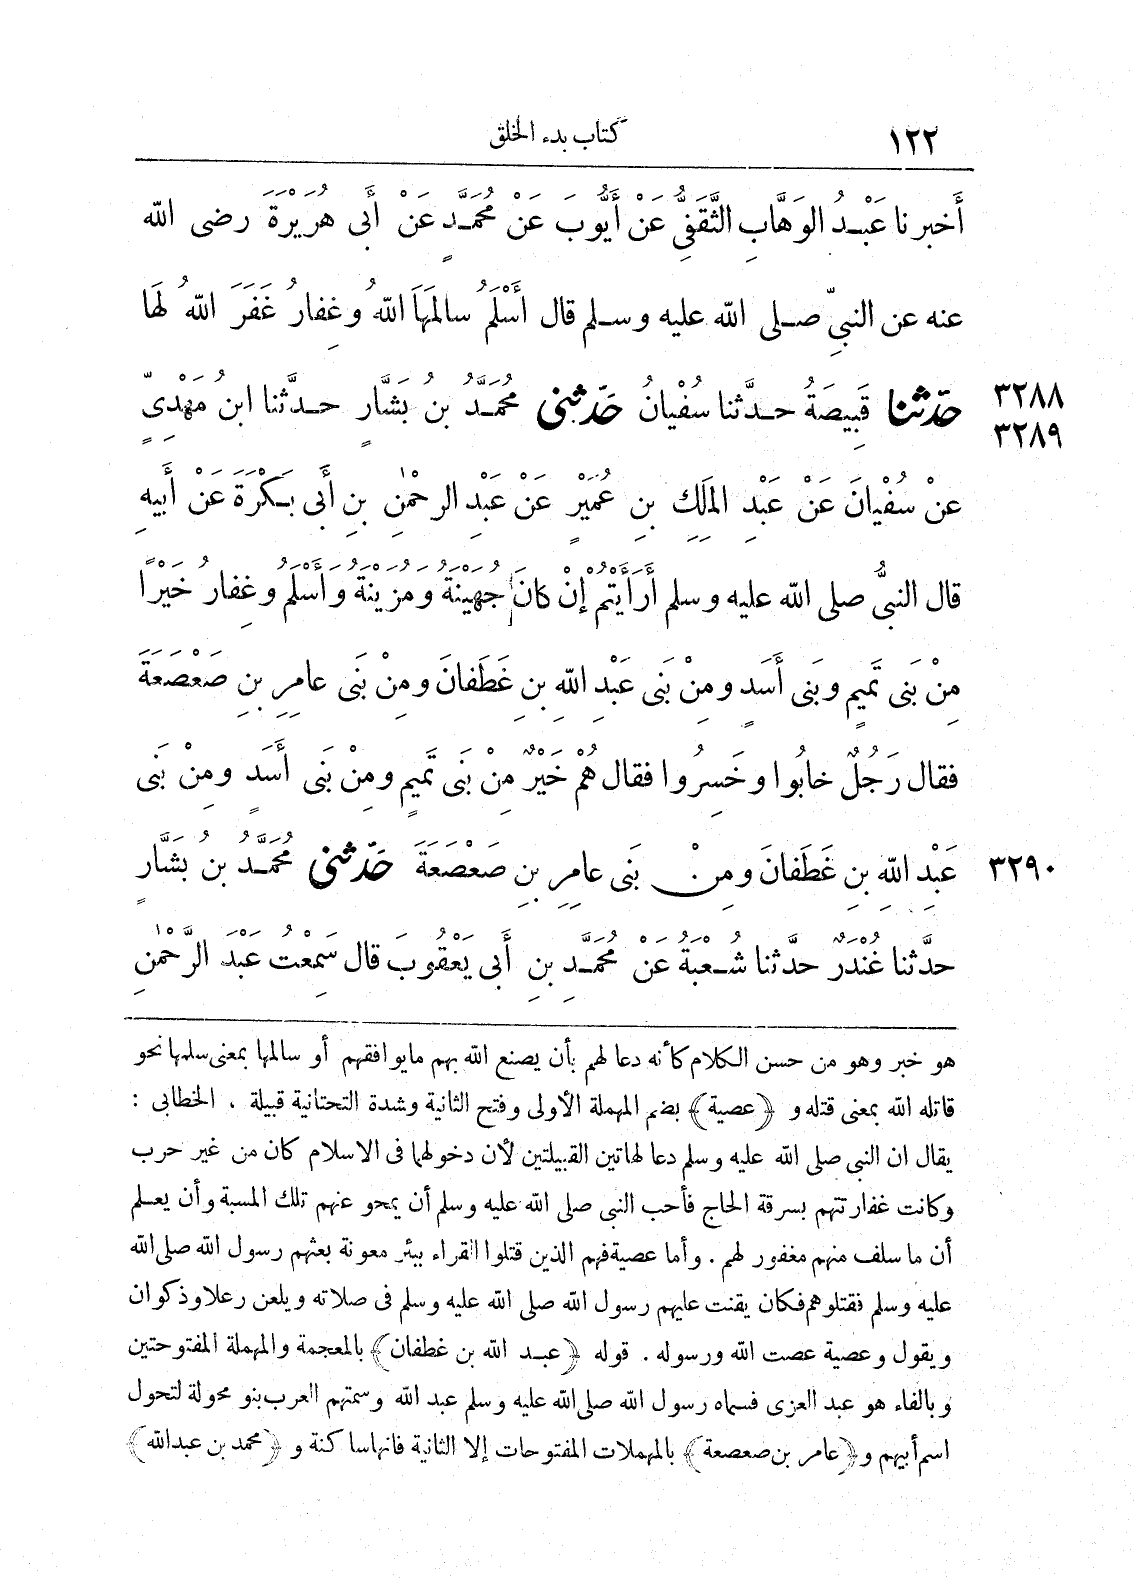 ١٢٢ كتاب بدء الخلق
أَخبرنا عَبْدُ الوَهَّابِ الثَّقَفِيُّ عَنْ أَيُّوبَ عَنْ مُحَمَّدٍ عَنْ أَبِى هُرَيْرَةَ رضى الله
عنه عن النبيِّ صلى الله عليه وسلم قال أَسْلَمُ سالَمَهَا اللهُ وغِفارُ غَفَرَ اللهُ لَهَا
٣٢٨٨ حَدَّثنا قَبِيصَةُ حدَّثنا سُفْيانُ حَدَّثنى مُحَمَّدُ بن بَشَّارٍ حدَّثنا ابنُ مَهْدِىٍّ
٣٢٨٩
عنْ سُفْيانَ عَنْ عَبْدِ المَلِكِ بنِ عُمَيْرٍ عَنْ عَبْدِ الرحْمٰنِ بنِ أَبى بَكْرَةَ عَنْ أَبِيهِ
قال النبيُّ صلى الله عليه وسلم أَرَأَيْتُمْ إِنْ كانَ جُهَيْنَةُ ومُزَيْنَةُ وأَسْلَمُ وغِفارُ خَيْراً
مِنْ بَنى تَمِيمٍ وبَنى أَسَدٍ ومِنْ بَنى عَبْدِ اللهِ بنِ غَطَفانَ ومِنْ بَنى عامِرِ بنِ صَعْصَعَةَ
فقال رَجُلٌ خابُوا وخَسِرُوا فقال هُمْ خَيْرٌ مِنْ بَنى تَمِيمٍ ومِنْ بَنى أَسَدٍ ومِنْ بَنى
٣٢٩٠ عَبْدِ اللهِ بنِ غَطَفانَ ومِنْ بَنى عامِرِ بنِ صَعْصَعَةَ حَدَّثنى مُحَمَّدُ بنُ بَشَّارٍ
حدَّثنا غُنْدَرٌ حدَّثنا شُعْبَةُ عَنْ مُحَمَّدِ بنِ أَبى يَعْقُوبَ قال سَمِعْتُ عَبْدَ الرَّحْمٰنِ
هو خبر وهو من حسن الكلام كأنه دعا لهم بأن يصنع الله بهم ما يوافقهم أو سالمها بمعنى سلمها نحو
قاتله الله بمعنى قتله و ﴿عصية﴾ بضم المهملة الأولى وفتح الثانية وشدة التحتانية قبيلة . الخطابى :
يقال ان النبي صلى الله عليه وسلم دعا لهاتين القبيلتين لأن دخولهما فى الاسلام كان من غير حرب
وكانت غفار تتهم بسرقة الحاج فأحب النبي صلى الله عليه وسلم أن يمحو عنهم تلك المسبة وأن يعلم
أن ما سلف منهم مغفور لهم . وأما عصية فهم الذين قتلوا القراء ببئر معونة بعثهم رسول الله صلى الله
عليه وسلم فقتلوهم فكان يقنت عليهم رسول الله صلى الله عليه وسلم فى صلاته ويلعن رعلا وذكوان
ويقول وعصية عصت الله ورسوله . قوله ﴿عبد الله بن غطفان﴾ بالمعجمة والمهملة المفتوحتين
وبالفاء هو عبد العزى فسماه رسول الله صلى الله عليه وسلم عبد الله وسمتهم العرب بنو محولة لتحول
اسم أبيهم و ﴿عامر بن صعصعة﴾ بالمهملات المفتوحات إلا الثانية فانها ساكنة و ﴿محمد بن عبد الله﴾